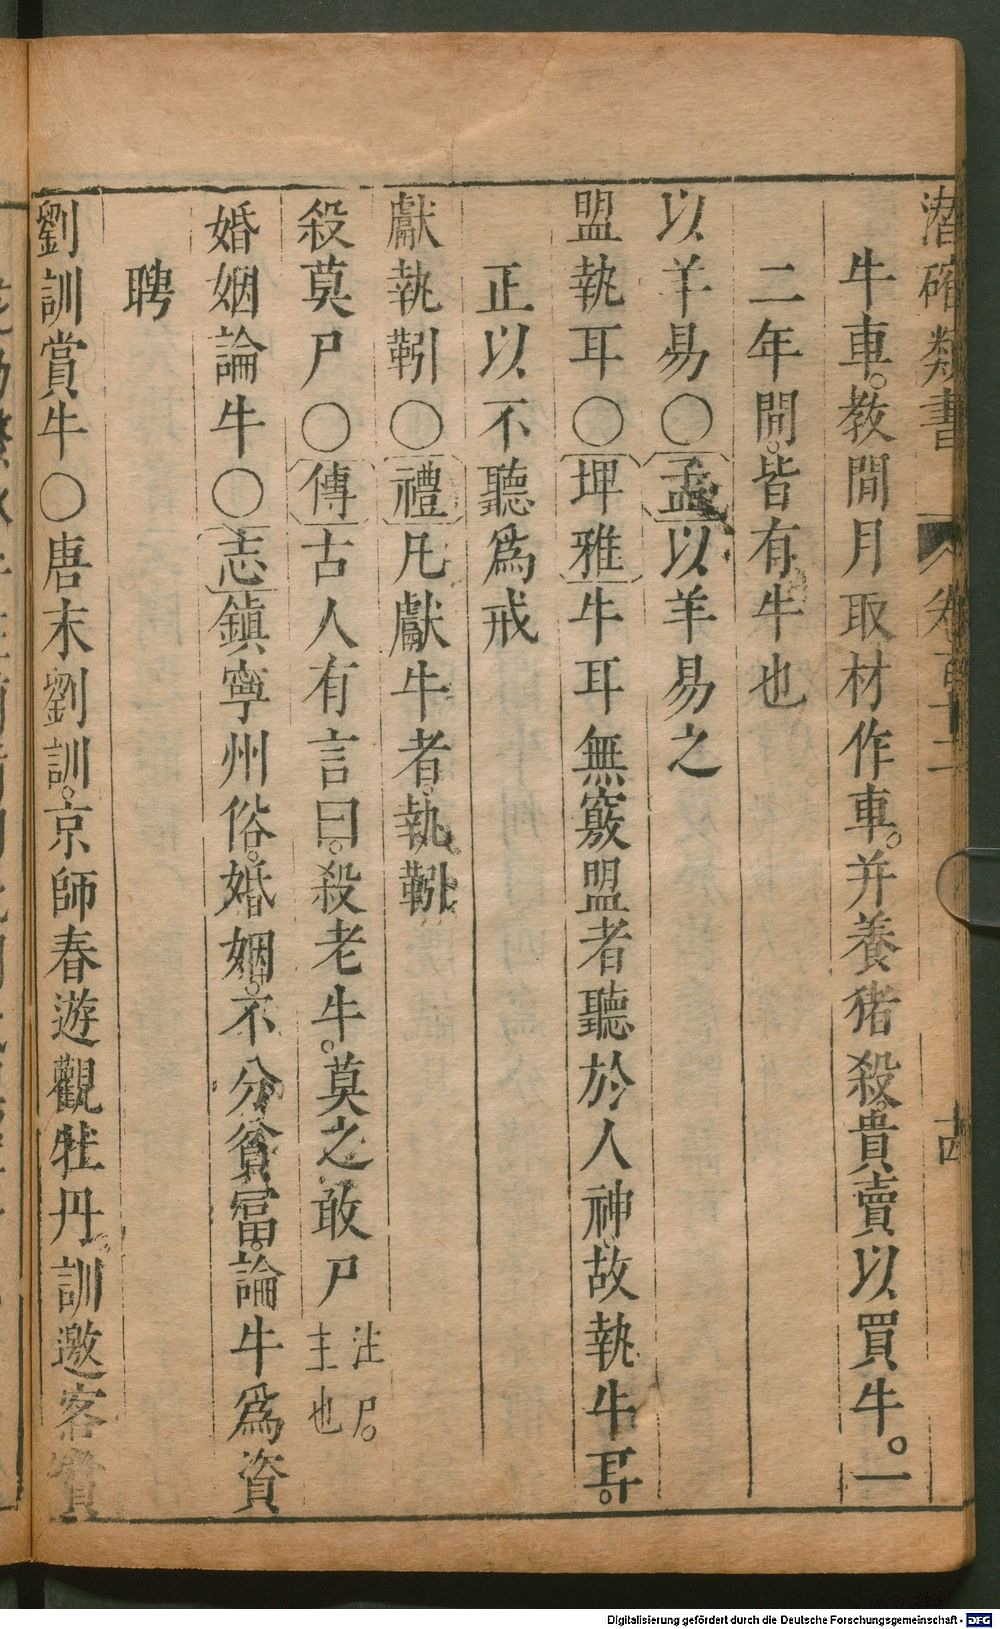 潛確類書 卷百十一 古
牛車。教閒月取材作車。并養猪殺。貴賣以買牛。一
二年間。皆有牛也
以羊易〇孟以羊易之
盟執耳〇埤雅牛耳無竅盟者聽於人神。故執牛耳。
正以不聽爲戒
獻執靷〇禮凡獻牛者。執靷。
殺莫尸〇傳古人有言曰。殺老牛。莫之敢尸 注尸。主也
婚姻論牛〇志鎮寧州俗。婚姻。不分貧富。論牛爲資
聘
劉訓賞牛〇唐末劉訓。京師春遊觀牡丹。訓邀客賞
Digitalisierung gefördert durch die Deutsche Forschungsgemeinschaft - DFG